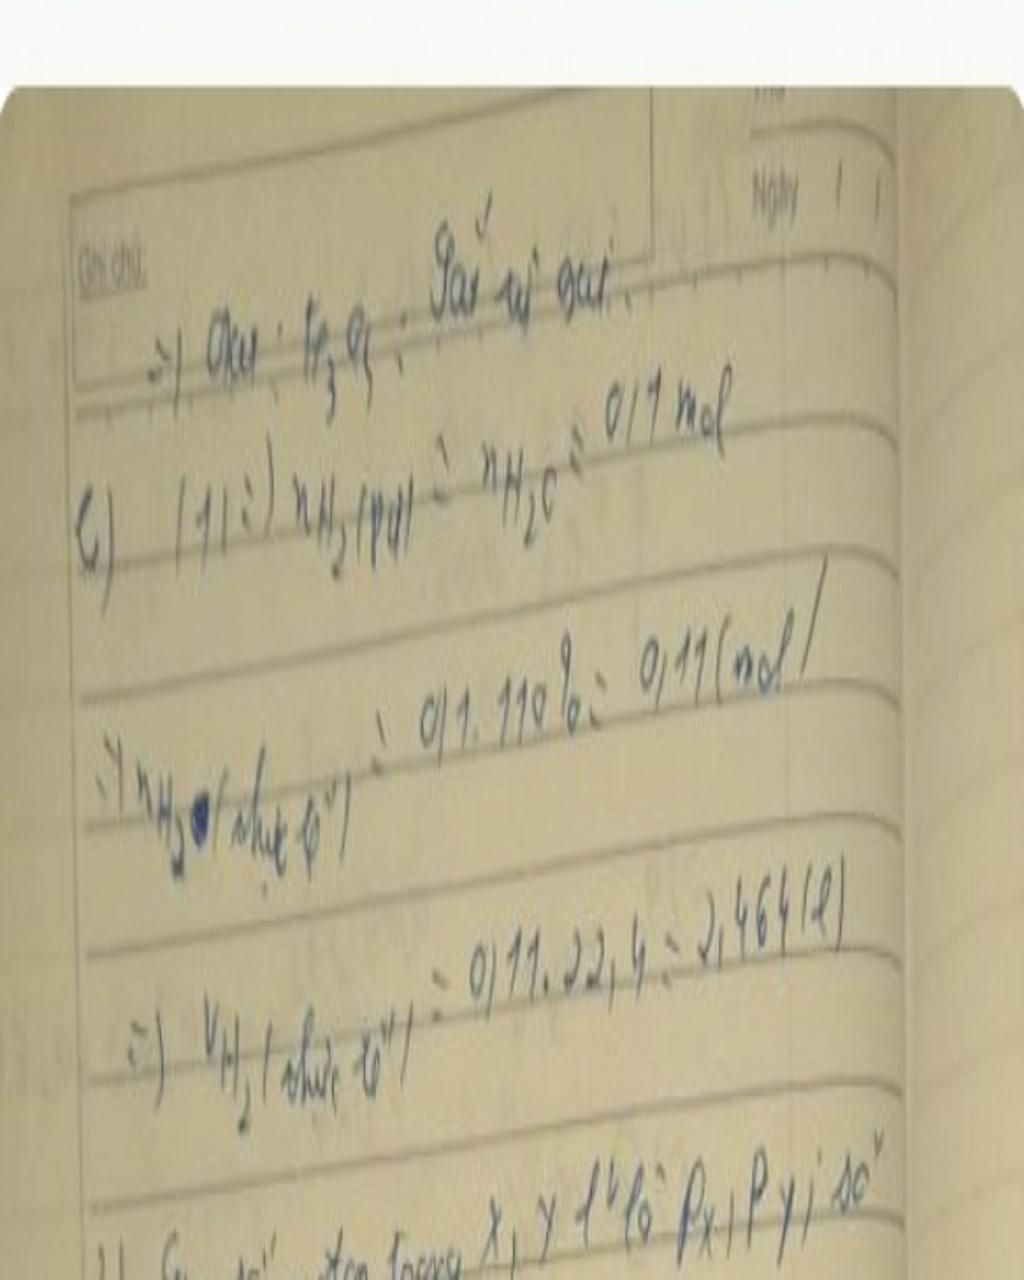 Ngày / /
Ghi chú:
=) Oxit: Fe3O4: Sắt từ oxit.
c) (1) =) nH2(pư) = nH2O = 0,1 mol
=) nH2(thực tế) = 0,1.110% = 0,11(mol)
=) VH2(thực tế) = 0,11.22,4 = 2,464(l)
X, Y lần lượt là PX, PY; số